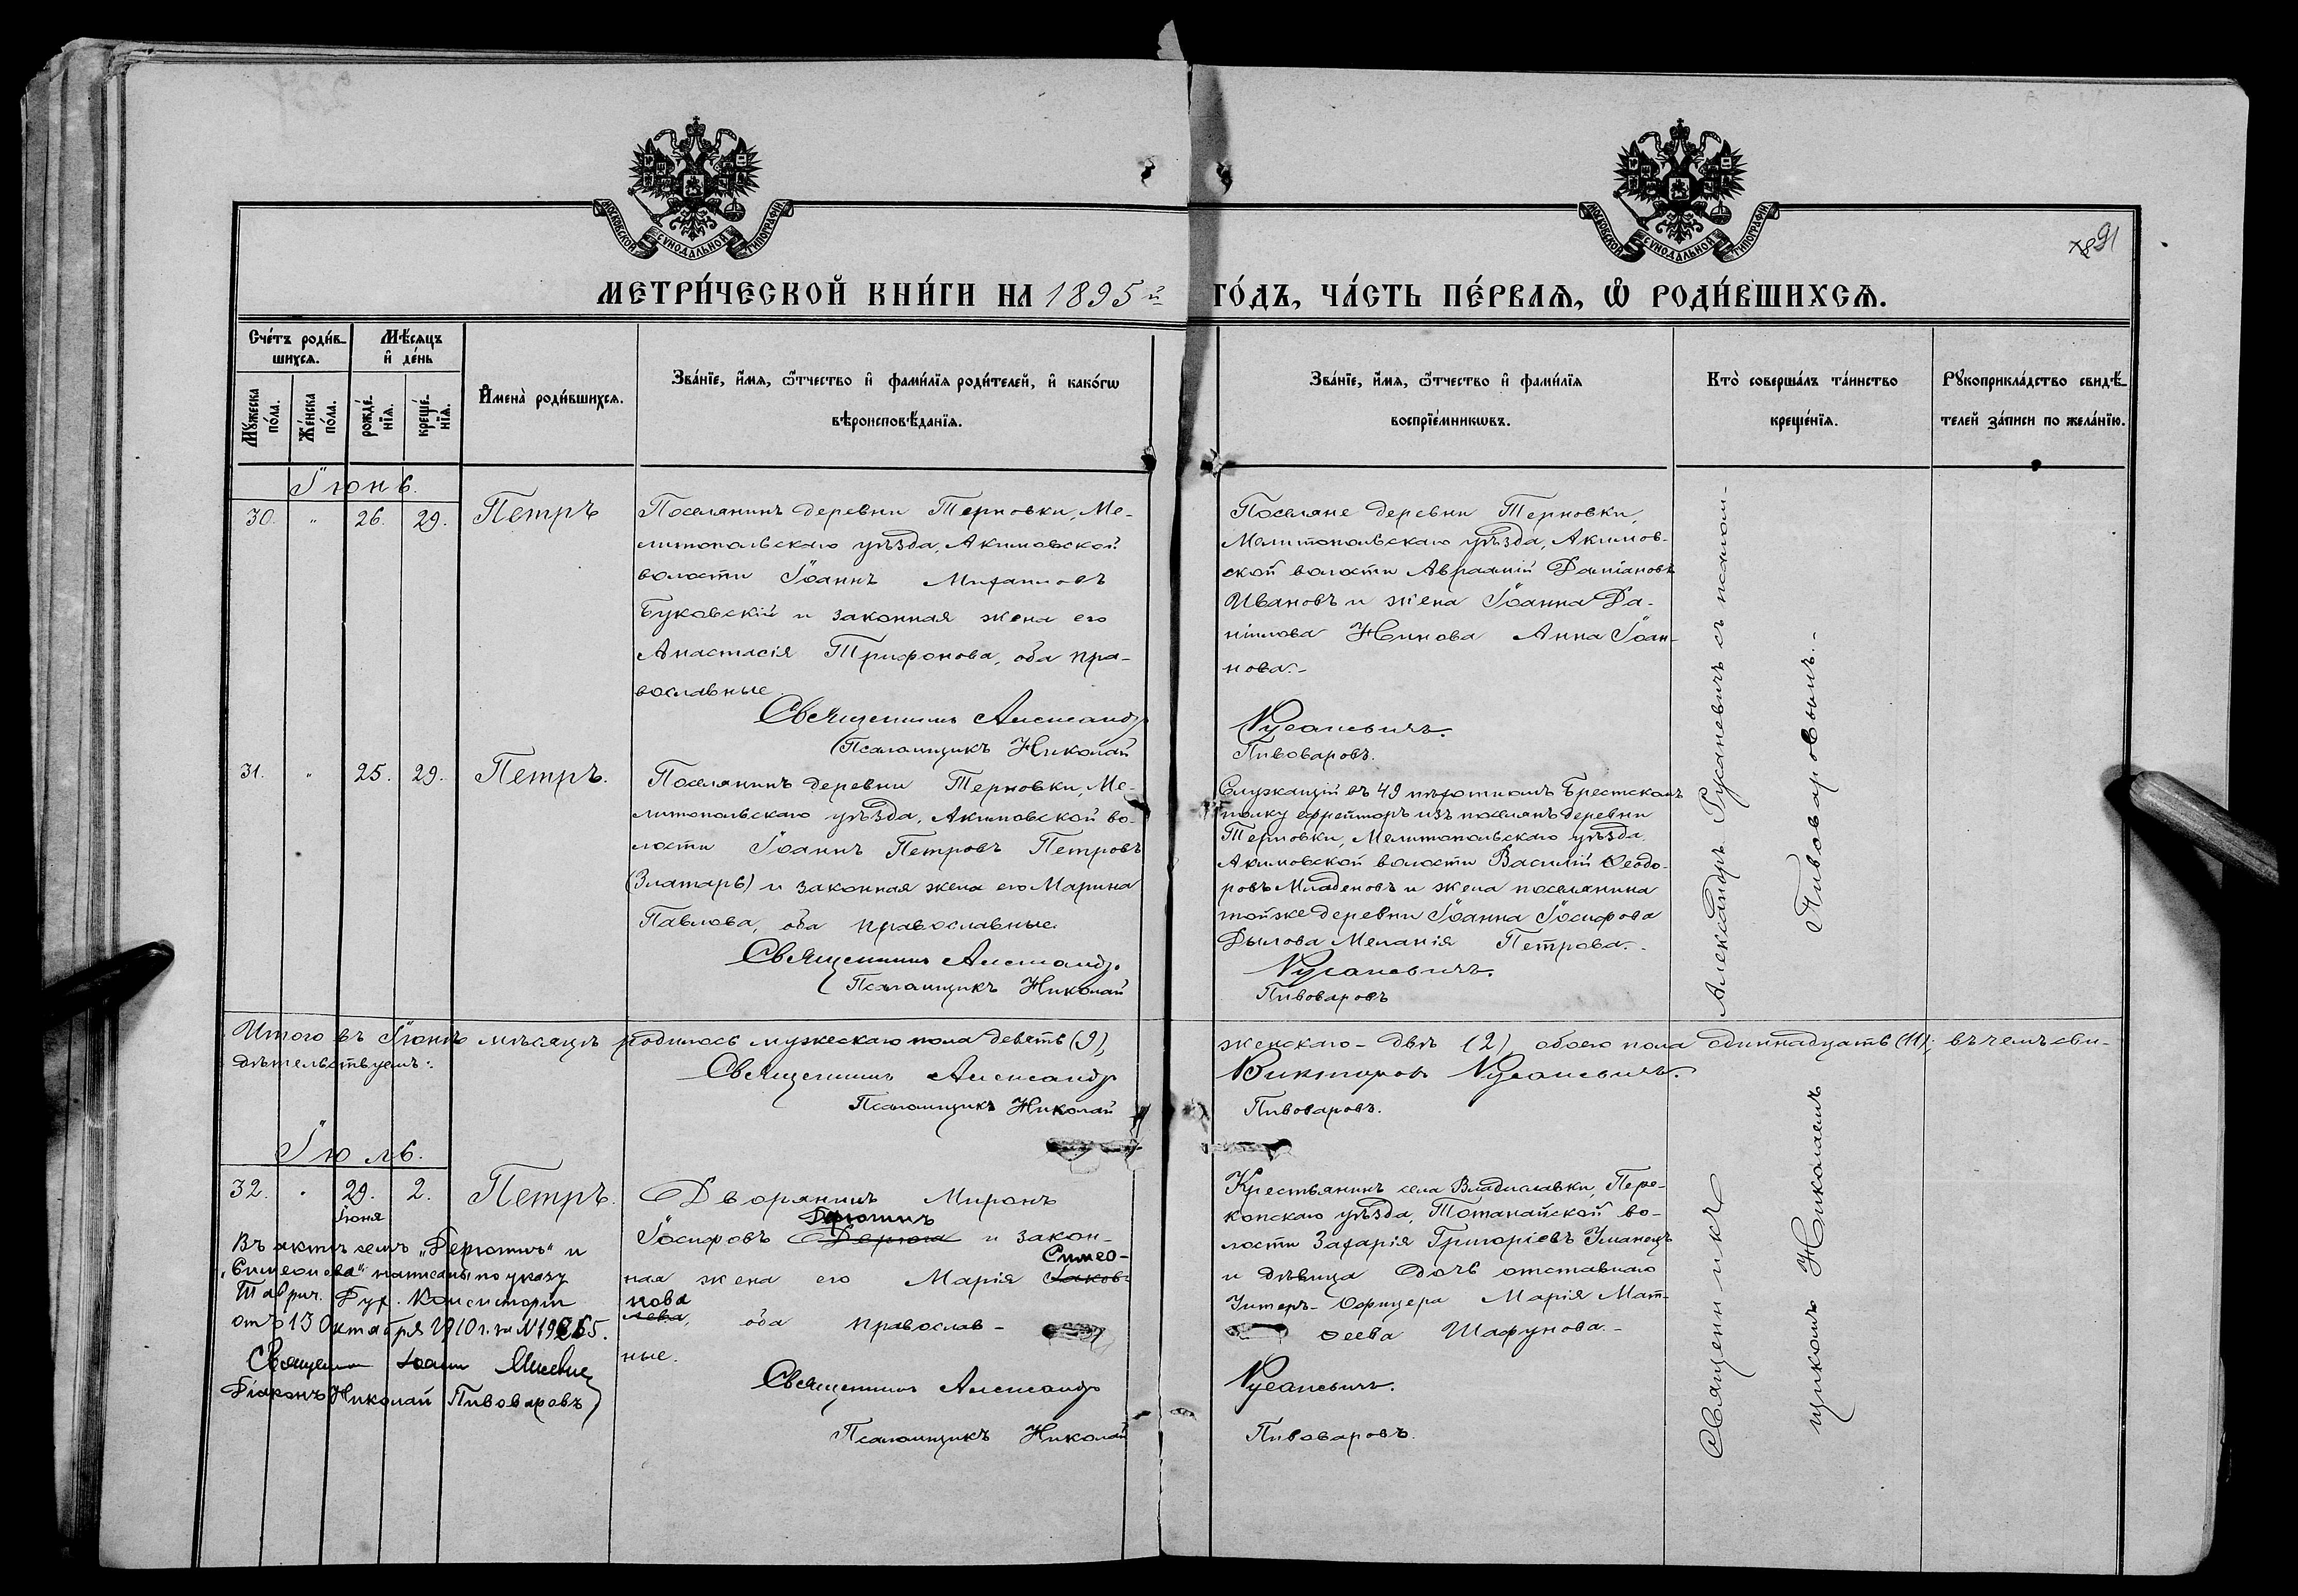 МОСКОВСКОЙ СУНОДАЛЬНОЙ ТИПОГРАФІИ
МОСКОВСКОЙ СУНОДАЛЬНОЙ ТИПОГРАФІИ
91
МЕТРИ́ЧЕСКОЙ КНИ́ГИ НА 1895й ГО́ДЪ, ЧА́СТЬ ПЕ́РВАѦ, Ѡ҆ РОДИ́ВШИХСѦ.
Сче́тъ роди́в-
шихсѧ.
Мꙋжеска по́ла.
Же́нска по́ла.
Мѣ́сяцъ
и҆ де́нь
рожде́-
нїѧ.
креще́-
нїѧ.
И҆мена̀ роди́вшихсѧ.
Зва́нїе, и҆́мѧ, ѻ҆́тчество и҆ фамн́лїѧ роди́телей, и҆ како́гѡ
вѣроисповѣ́данїѧ.
Зва́нїе, и҆́мѧ, ѻ҆́тчество и҆ фами́лїѧ
воспрїе́мникѡвъ.
Кто̀ соверша́лъ та́инство
креще́нїѧ.
Рꙋкоприкла́дство свидѣ́-
телей за́писи по жела́нїю.
Іюнь.
30. " 26. 29. Петръ
Поселянинъ деревни Терновки, Ме-
литопольскаго уѣзда, Акимовской
волости Іоаннъ Михаиловъ
Буковскій и законная жена его
Анастасія Трифонова, оба пра-
вославные.
Священникъ Александръ
Псаломщикъ Николай
Поселяне деревни Терновки,
Мелитопольскаго уѣзда, Акимов-
ской волости Авраамій Даміановъ
Ивановъ и жена Іоанна Да-
ніилова Нинова Анна Іоан-
нова.-
Русаневичъ.
Пивоваровъ.
31. " 25. 29. Петръ.
Поселянинъ деревни Терновки, Ме-
литопольскаго уѣзда, Акимовской во-
лости Іоаннъ Петровъ Петровъ
(Златарь) и законная жена его Марина
Павлова, оба православные.
Священникъ Александръ
Псаломщикъ Николай
Служащій въ 49 пѣхотномъ Брестскомъ
полку ефрейторъ изъ поселянъ деревни
Терновки, Мелитопольскаго уѣзда,
Акимовской волости Василій Ѳеодо-
ровъ Младеновъ и жена поселянина
тойже деревни Іоанна Іосифова
Дылова Меланія Петрова.
Русаневичъ.
Пивоваровъ
Итого въ Іюнѣ мѣсяцѣ родилось мужескаго пола девять (9), женскаго - двѣ (2), обоего пола одиннадцать (11); въ чемъ сви-
дѣтельствуемъ:
Священникъ Александръ Викторовъ Русаневичъ.
Псаломщикъ Николай Пивоваровъ.
Іюль.
32. " 29. 2. Петръ.
Іюня
Дворянинъ Миронъ
Дерюгинъ
Іосифовъ Дерюга и закон-
Симео-
ная жена его Марія Іаков-
нова
лева, оба православ-
ные.
Священникъ Александръ
Псаломщикъ Николай
Крестьянинъ села Владиславки, Пере-
копскаго уѣзда, Тотанайской во-
лости Захарія Григоріевъ Уманецъ
и дѣвица дочь отставнаго
Унтеръ-Офицера Марія Мат-
ѳеева Шафунова.-
Русаневичъ.
Пивоваровъ.
Въ актѣ семъ "Дерюгинъ" и
"Симеонова" написаны по указу
Таврич. Дух. Консисторіи
отъ 13 Октября 1910 г. за №
Священникъ Іоаннъ
Діаконъ Николай Пивоваровъ
Священникъ Александръ Русаневичъ съ псалом-
щикомъ Николаемъ Пивоваровымъ.-